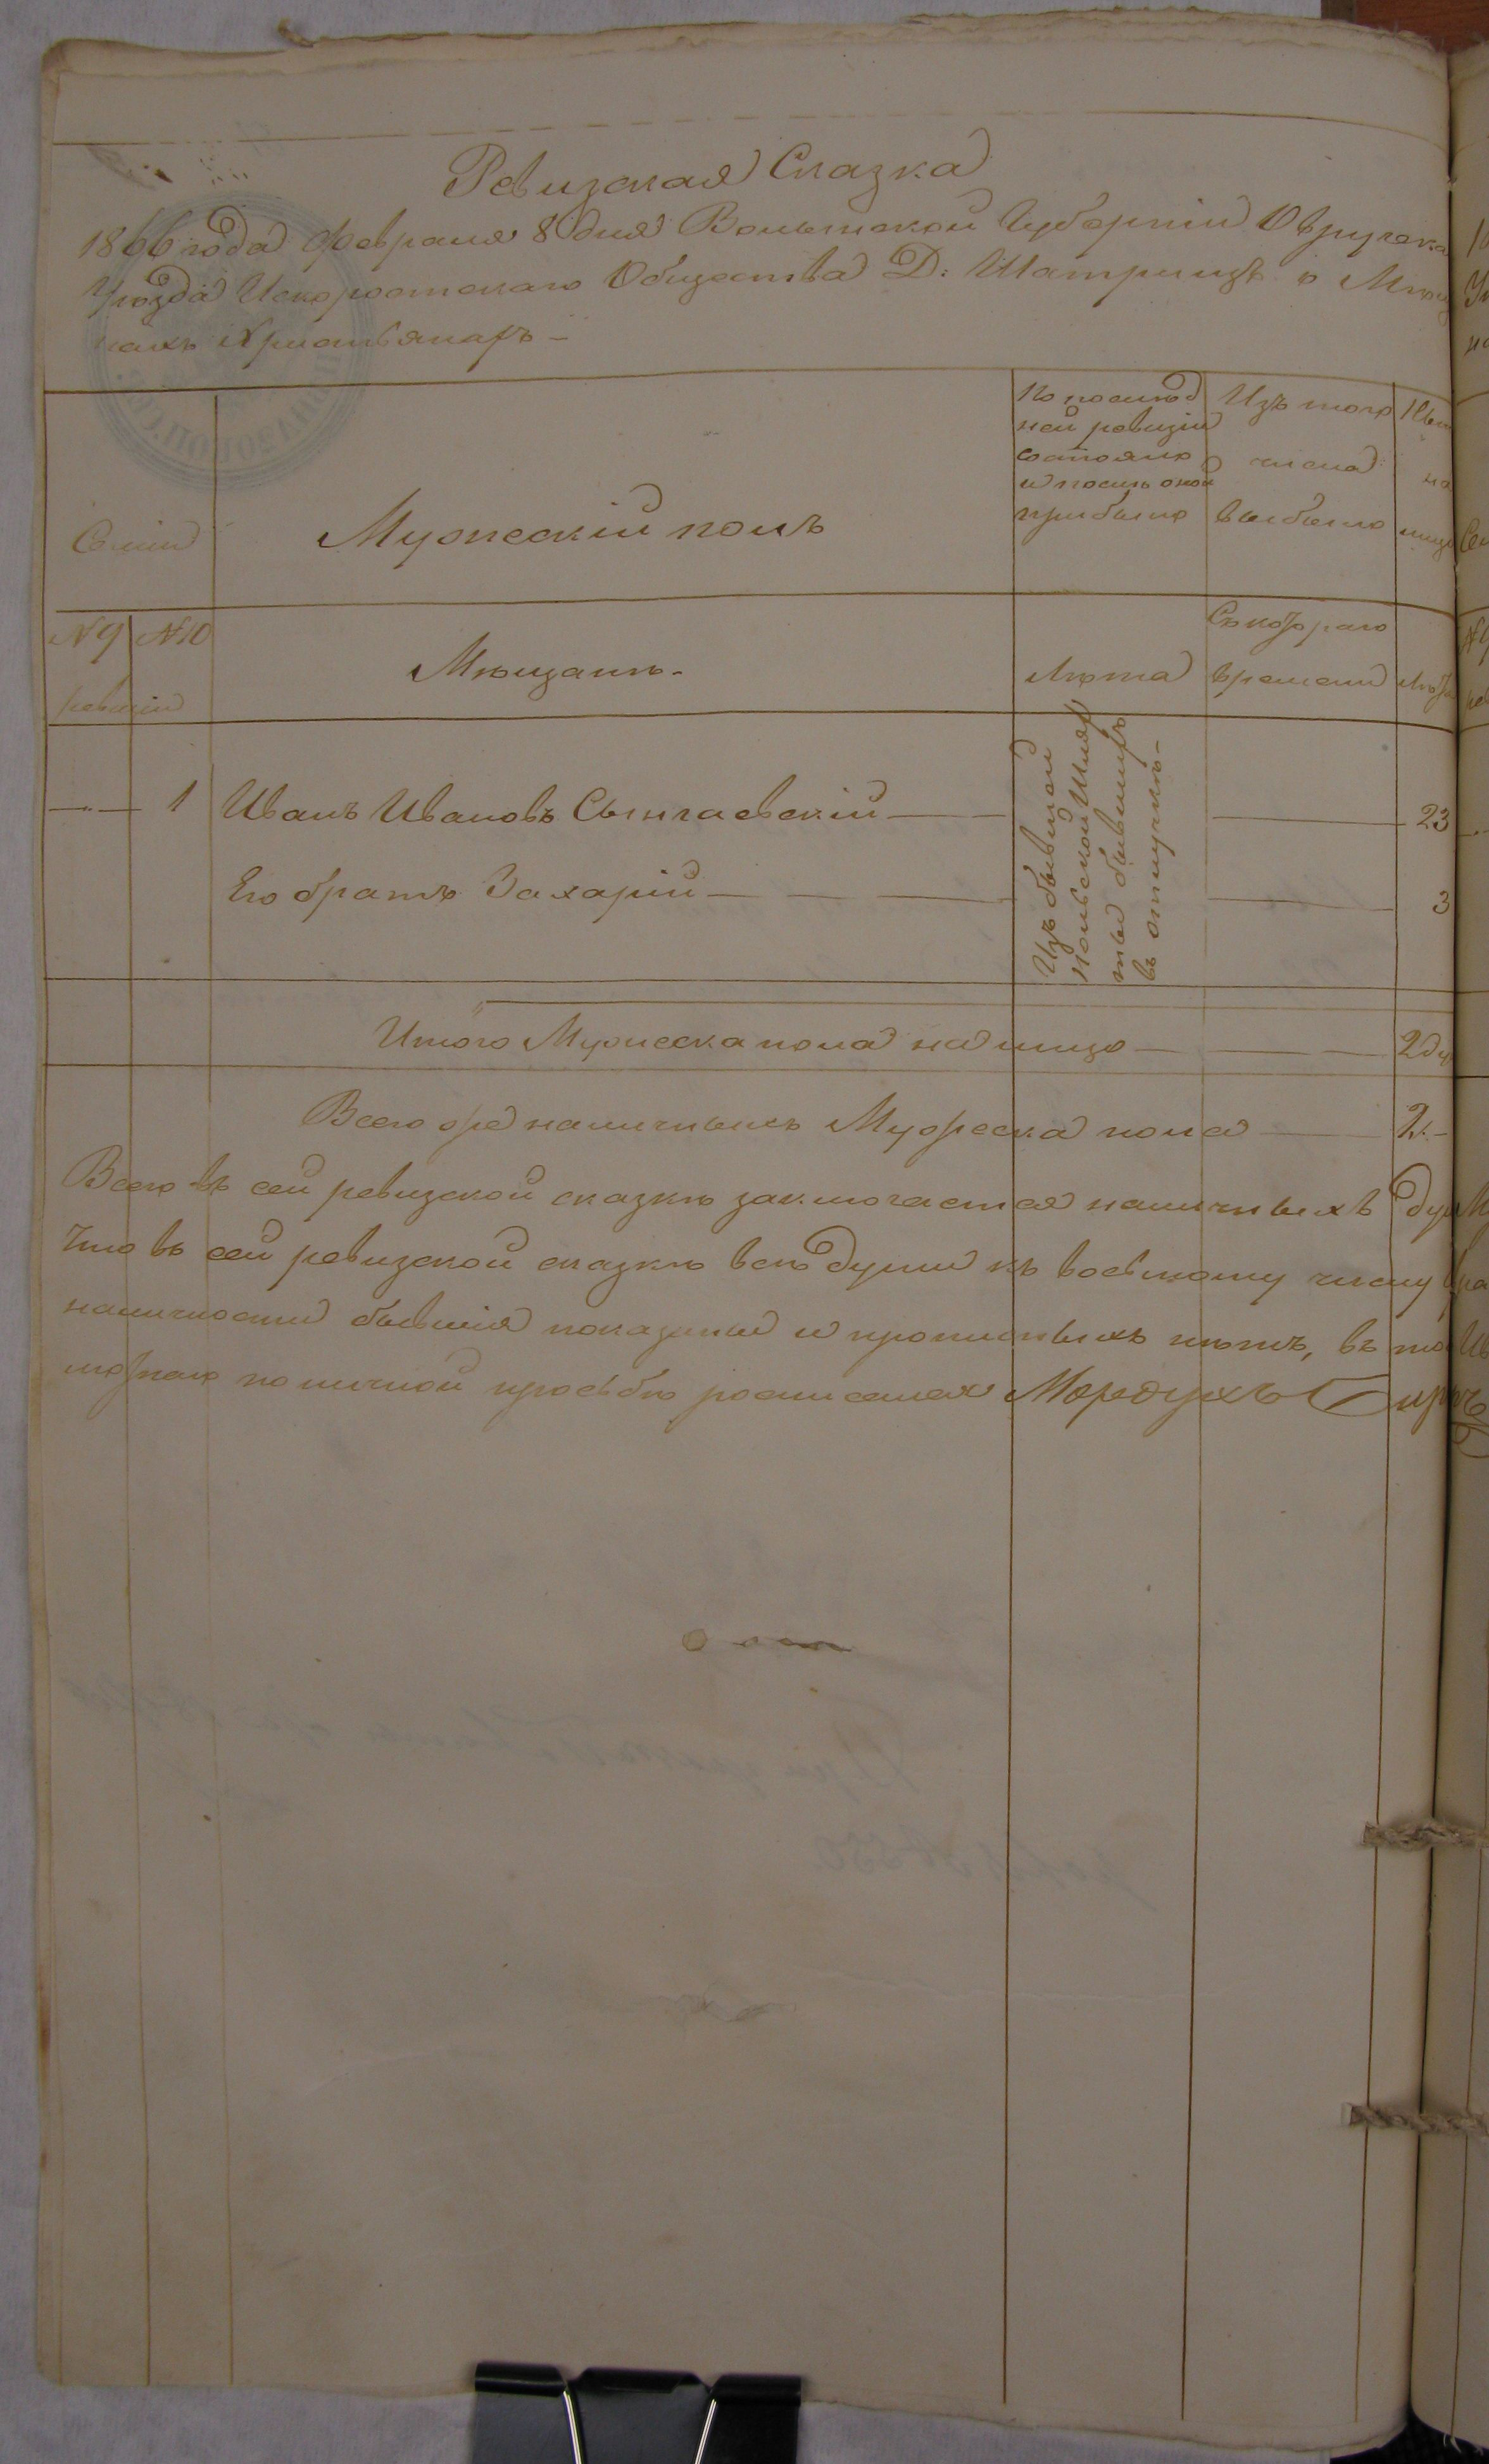 Ревизская Сказка
1866 года Февраля 8 дня Волынской Губерніи Овручска
Уѣзда Искоростскаго Общества Д: Шатрищъ о Мѣщ
нахъ Христьянахъ -
Семіи
Мужескій полъ
По послѣд
ней ревизіи
состояло
и послѣ оной
прибыло
Изъ того
числа
выбыло
Нын
на
лицо
№ 9 № 10
ревизіи
Мѣщанъ.
Лѣта
Съ котораго
времени
Лѣта
1 Иванъ Ивановъ Сынгаевскій 23
Его братъ Захарій 3
Изъ бывшей
польской Шлях
ты бывшихъ
въ отлучкѣ -
Итого Мужеска пола на лицо 2 ду
Всего же наличныхъ Мужеска пола 2.-
Всего въ сей ревизской сказкѣ заключается наличныхъ душ
Что въ сей ревизской сказкѣ всѣ души къ восьмому числу
наличности бывшія показаны и прописныхъ нѣтъ, въ то
по личной просьбѣ росписался Мордухъ